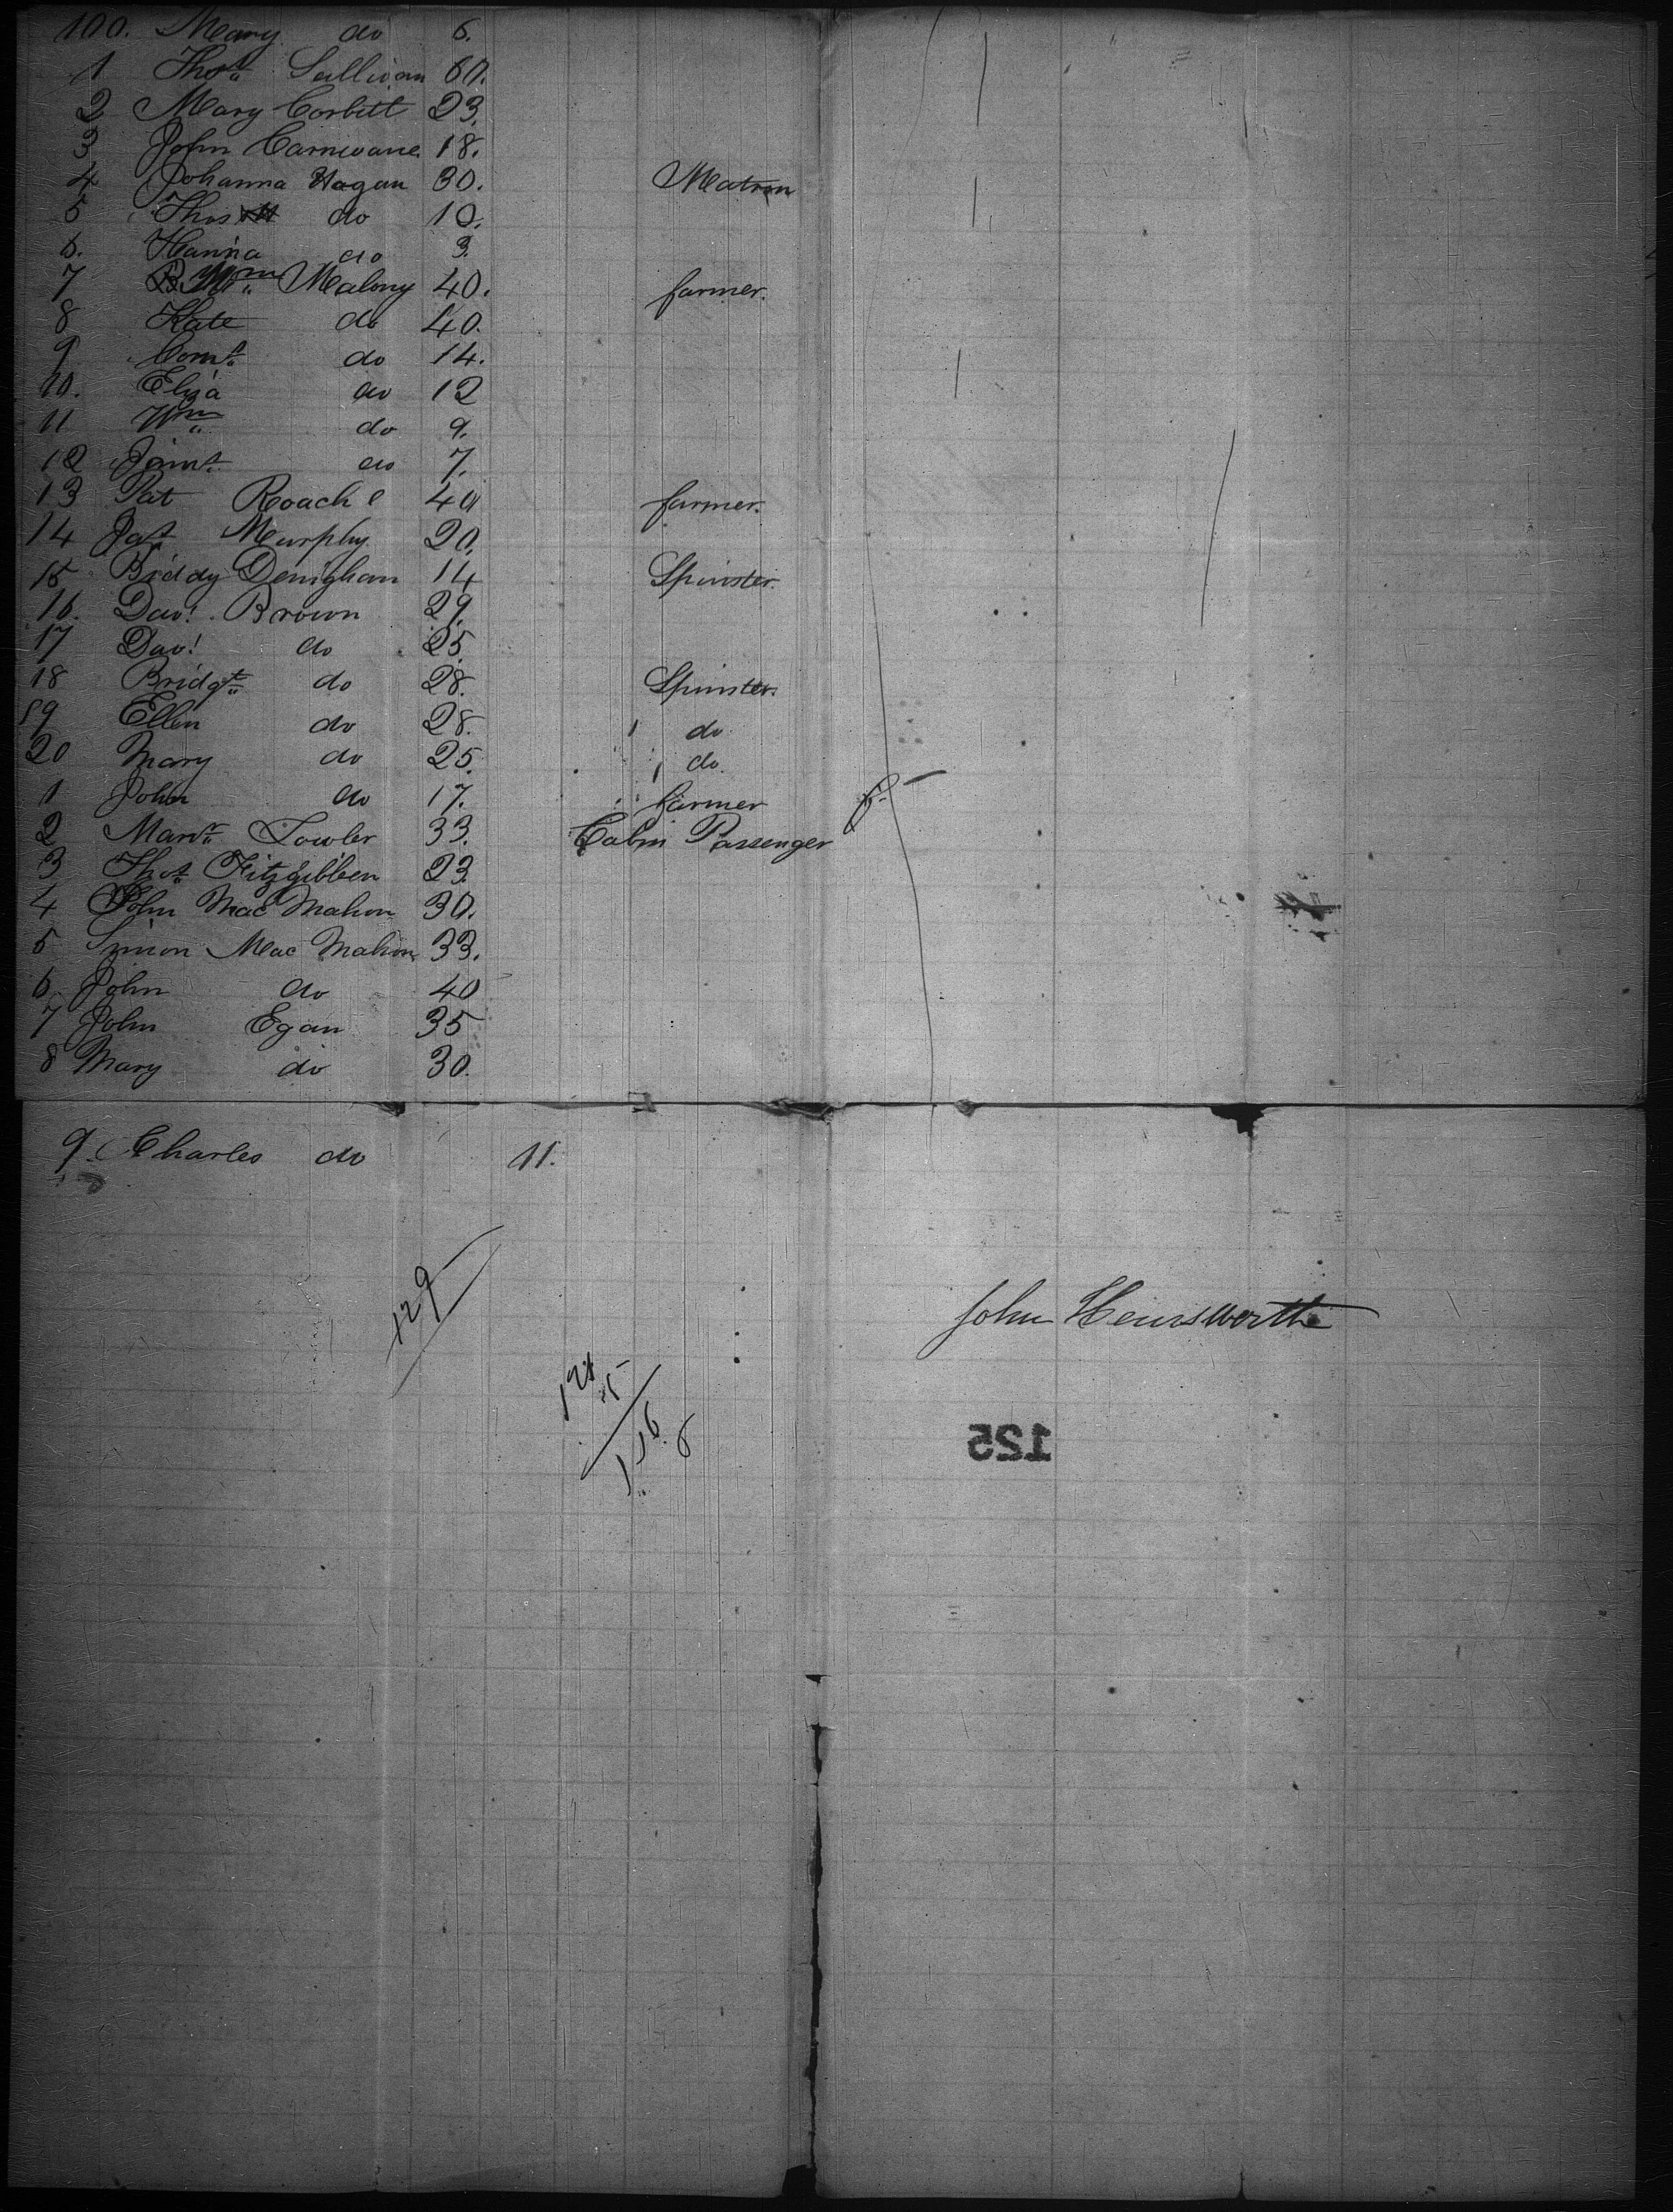 100. Mary do 6.
1 Thos. Sullivan 60.
2 Mary Corbitt 23.
3 John Carnivane 18.
4 Johanna Hagan 30. Matron
5 Thos do 10.
6. Hanna do 3.
7 Wm Malony 40. farmer.
8 Kate do 40.
9 Cornt. do 14.
10. Eliza do 12
11 Wm do 9.
12 do 7.
13 Pat Roach 40 farmer.
14 Murphy 20.
15 Biddy Denighan 14 Spinster.
16. Dav! Brown 29.
17 Dav! do 25.
18 Bridgt. do 28. Spinster.
19 Ellen do 28. do
20 Mary do 25. do.
1 John do 17. farmer
2 Mart. Lowler 33. Cabin Passenger
3 Thos Fitzgibben 23.
4 John Mac Mahon 30.
5 Simon Mac Mahon 33.
6. John do 40
7 John Egan 35
8 Mary do 30.
9. Charles do 11.
129
John Hemsworth
125